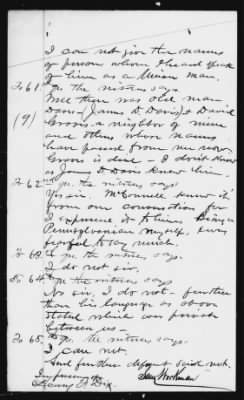 I can not give the names
of person whom I heard speak
of him as a Union man.
To 61. qu. the witness says.
Well there was old man
Dove (James D. Dove) & David
(9) Groves a neighbor of mine
and others whose names
have passed from me now
Groves is dead - I don't know
as James D Dove knew him.
To 62nd qu. the witness says
Yes sir McConnell knew it
from our conversation for
I expressed it to him. Being a
Pennsylvanian myself, I was
fearful to say much.
To 63 qu. the witness says.
I do not sir,
To 64 qu. the witness says
No sir, I do not - further
than his language as above
stated which was private
between us -
To 65. qu. the witness says.
I can not.
And further deponent saith not.
Workman
Henry